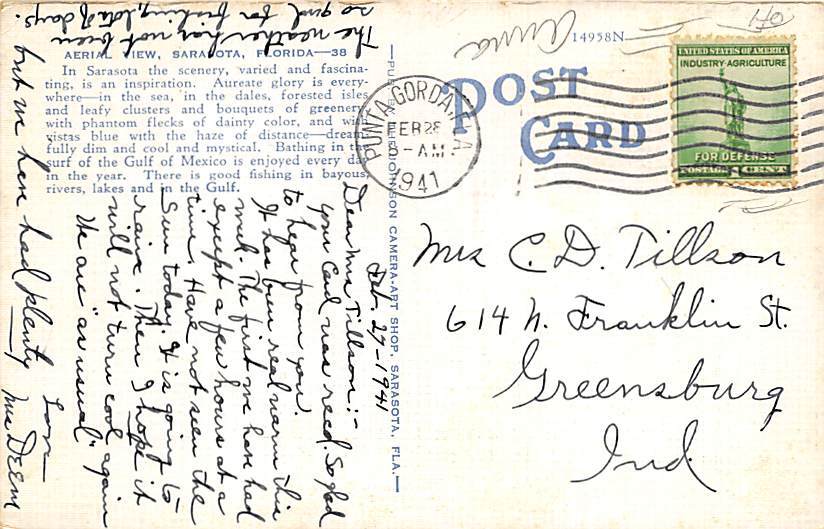 AERIAL VIEW, SARASOTA, FLORIDA—38
In Sarasota the scenery, varied and fascina-
ting, is an inspiration. Aureate glory is every-
where—in the sea, in the dales, forested isles
and leafy clusters and bouquets of greenery
with phantom flecks of dainty color, and with
vistas blue with the haze of distance—dream-
fully dim and cool and mystical. Bathing in the
surf of the Gulf of Mexico is enjoyed every day
in the year. There is good fishing in bayous,
rivers, lakes and in the Gulf.
JOHNSON CAMERA-ART SHOP, SARASOTA, FLA.—
14958N
POST
CARD
PUNTA GORDA, FLA
FEB 28
8-AM
1941
UNITED STATES OF AMERICA
INDUSTRY·AGRICULTURE
FOR DEFENSE
POSTAGE 1 CENT
Anna
Mrs C. D. Tillson
614 N. Franklin St.
Greensburg
Ind.
Feb. 27-1941
Dear Mrs Tillson:-
your Card was recd. So glad
to hear from you.
It has been real warm this
week. The first we have had
except a few hours at a
time. Have not seen the
Sun today. It is going to
rain. Then I hope it
will not turn cool again
We are "as usual"
Love
Mrs Deem
The weather has not been
so good for fishing, lots of days.
but we here had plenty